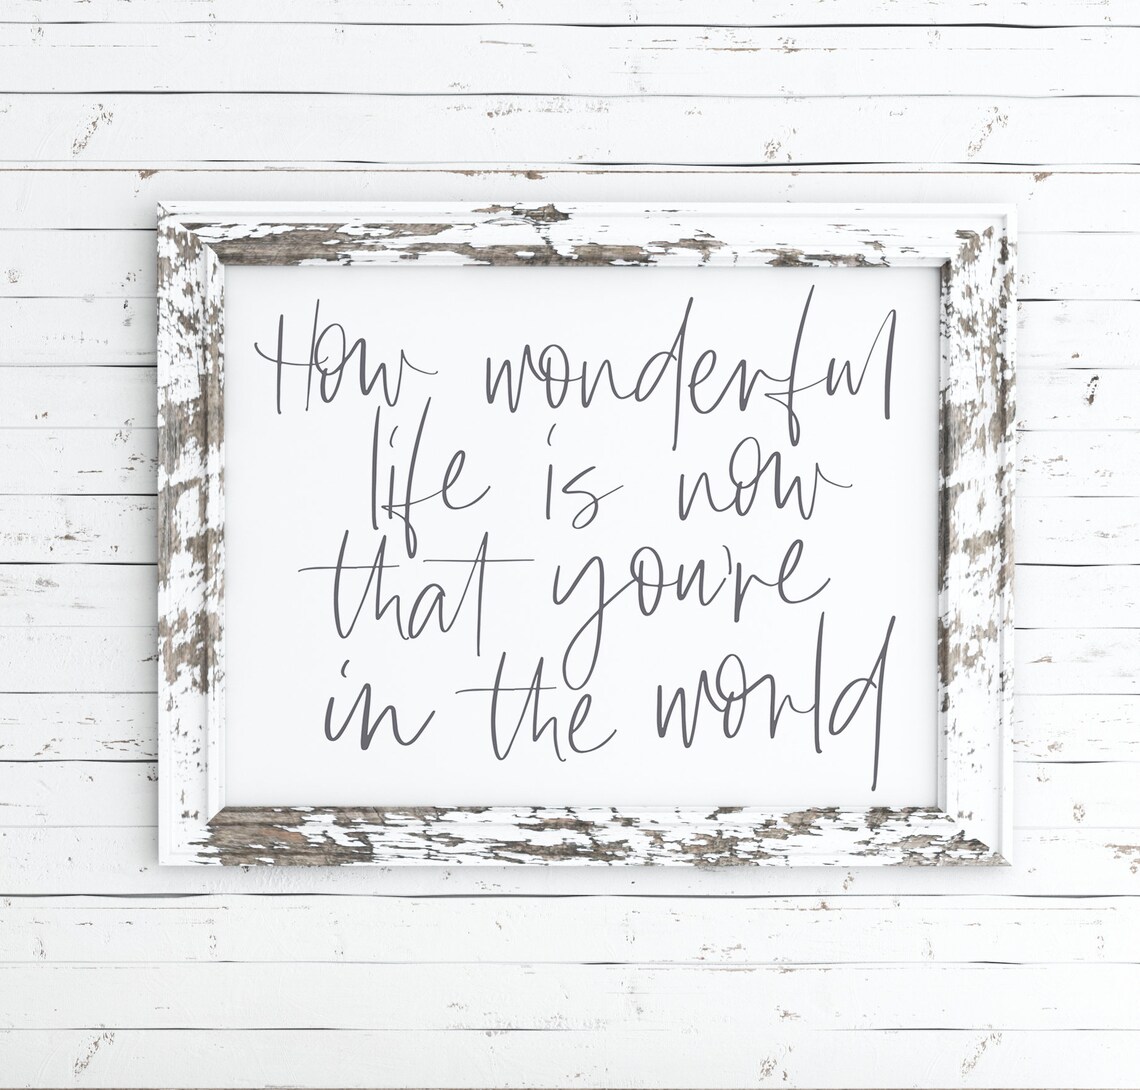 How wonderful
life is now
that you're
in the world